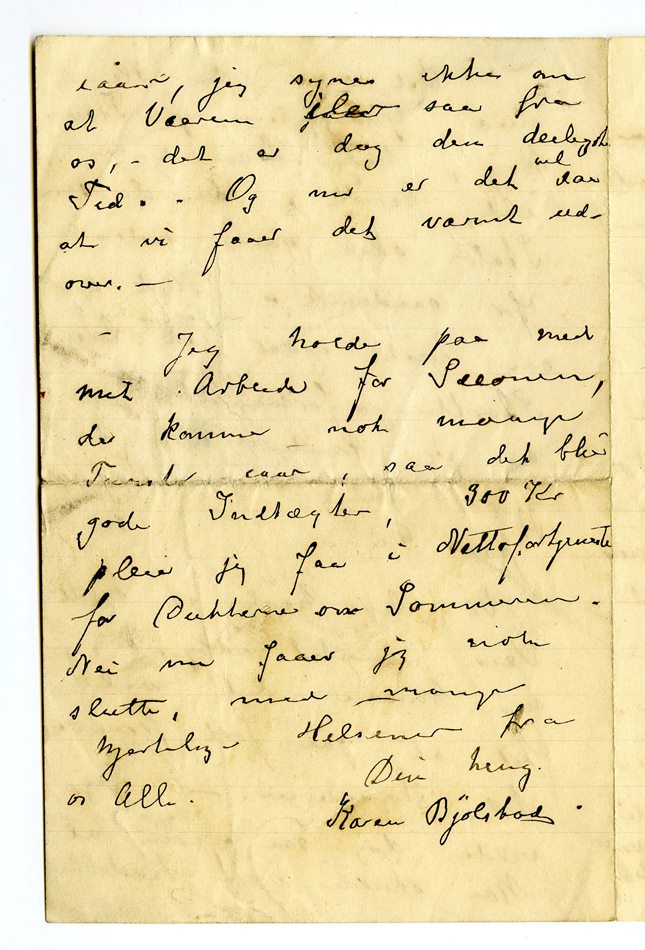 iaar, jeg synes ikke om
at Vaaren iler saa fra
os, - det er dog den deiligste
Tid. - Og nu er det vel saa
at vi faaer det varmt ud-
over. -
- Jeg holder paa med
mit Arbeide for Sæsonen,
der kommer nok mange
iaar, saa det blir
gode Indtægter, 300 Kr
pleier jeg faa i Nettofortjeneste
for Dukkerne om Sommeren.
Nei nu faaer jeg nok
slutte, med mange
hjertelige Helsener fra
Din heng.
os Alle.
Karen Bjølstad.